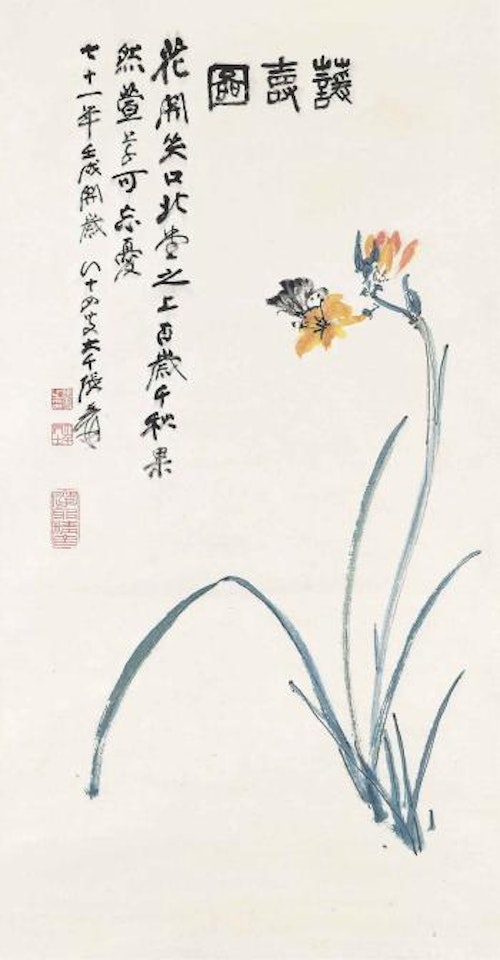 蘐壽圖
花開笑口北堂之上百歲千秋果
然萱草可忘憂
七十一年壬戌開歲八十四叟大千張爰